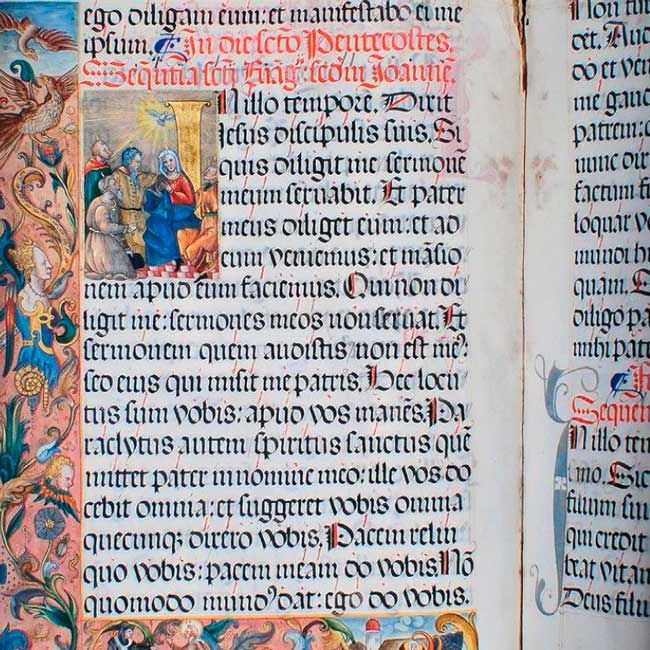 ego diligam eum: et manifestabo ei me
ipsum. In die scto Pentecostes.
Sequētia scti Euāg: scdm Joannē.
IN illo tempore. Dixit
Jesus discipulis suis. Si
quis diligit me sermonē
meum seruabit. Et pater
meus diliget eum: et ad
eum veniemus: et māsio
nem apud eum faciemus. Qui non di
ligit me: sermones meos non seruat. Et
sermonem quem audistis non est meꝰ:
sed eius qui misit me patris. Hec locu
tus sum vobis: apud vos manēs. Pa
raclytus autem spiritus sanctus quē
mittet pater in nomine meo: ille vos do
cebit omnia: et suggeret vobis omnia
quecunqꝫ dixero vobis. Pacem relin
quo vobis: pacem meam do vobis. Nō
quomodo mundꝰ dat: ego do vobis.
Non tur
det. Aud
do et ven
me gaud
patrem:
nunc dix
factum f
loquar vo
mundi h
quam.
diligo pa
mihi pate
Sequen
IN illo tem
mo. Sic
filium suu
qui credit
beat vitam
Deus filiu